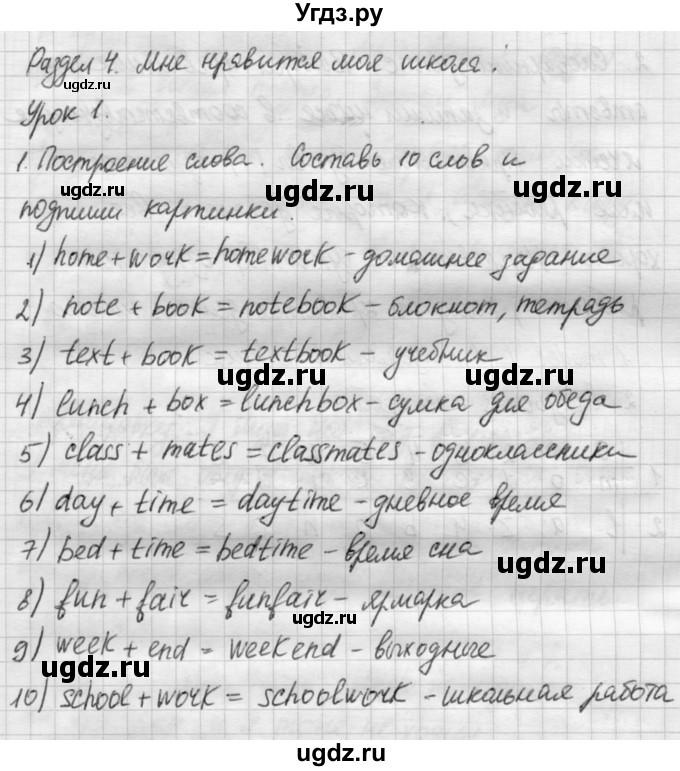 Угдз.ру
Раздел 4. Мне нравится моя школа!
ugdz.ru
Урок 1.
ugdz.ru
1. Построение слова. Составь 10 слов и
ugdz.ru ugdz.ru ugdz.ru
подпиши картинки.
1) home + work = homework - домашнее задание
2) note + book = notebook - блокнот, тетрадь
3) text + book = textbook - учебник
ugdz.ru ugdz.ru
4) lunch + box = lunchbox - сумка для обеда
5) class + mates = classmates - одноклассники
6) day + time = daytime - дневное время
ugdz.ru
7) bed + time = bedtime - время сна
ugdz.ru ugdz.ru
8) fun + fair = funfair - ярмарка
9) week + end = weekend - выходные
ugdz.ru ugdz.ru
10) school + work = schoolwork - школьная работа
ugdz.ru